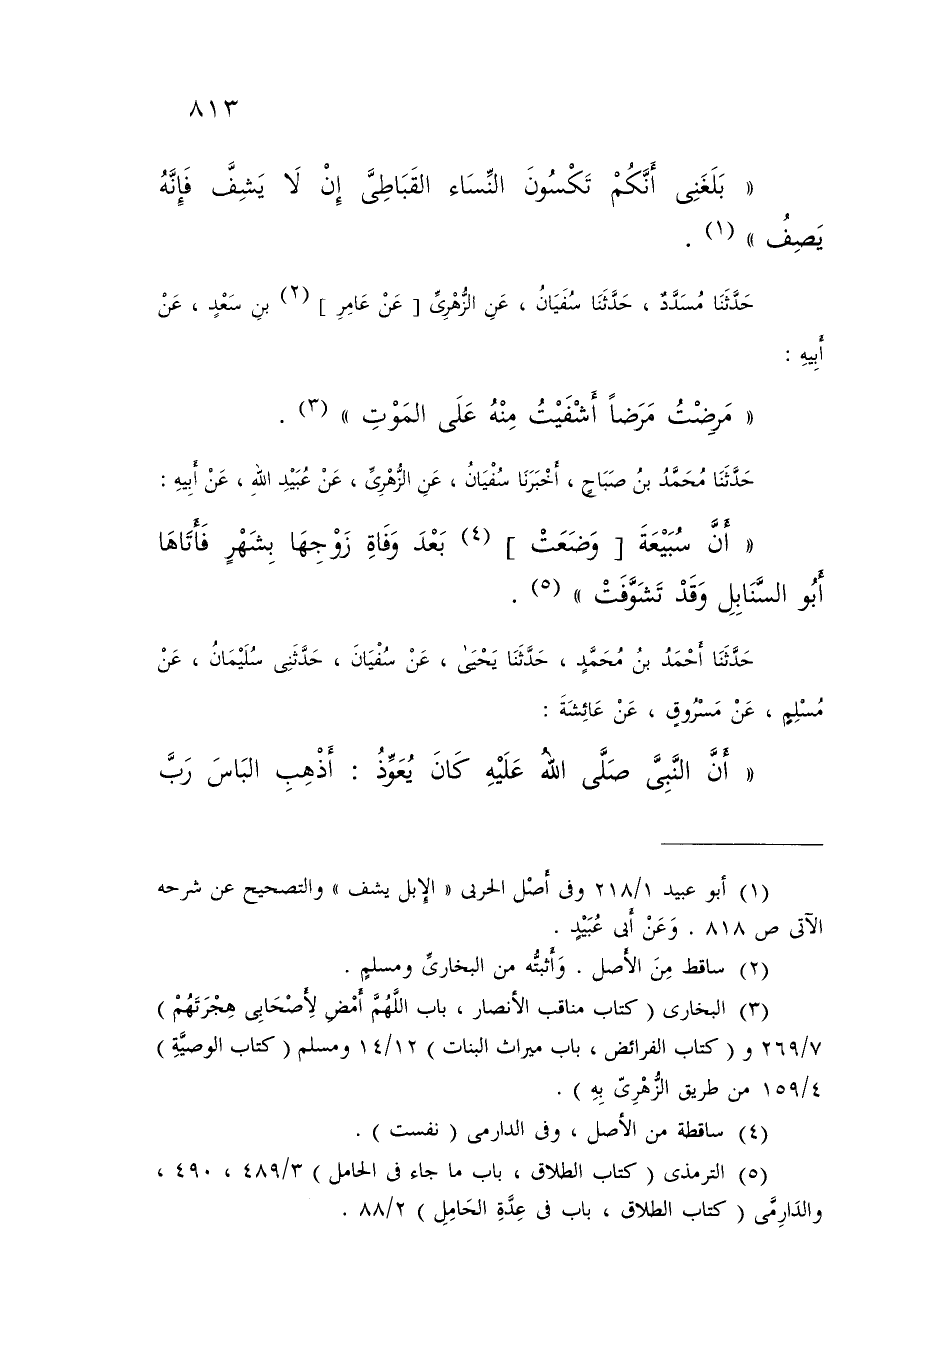 ٨١٣
« بَلَغَنِى أَنَّكُمْ تَكْسُونَ النِّسَاء القَبَاطِىَّ إِنْ لَا يَشِفَّ فَإِنَّهُ
يَصِفُ » (١) .
حَدَّثَنَا مُسَدَّدٌ ، حَدَّثَنَا سُفَيَانُ ، عَنِ الزُّهْرِىِّ [ عَنْ عَامِرِ ] (٢) بنِ سَعْدٍ ، عَنْ
أَبِيهِ :
« مَرِضْتُ مَرَضاً أَشْفَيْتُ مِنْهُ عَلَى المَوْتِ » (٣) .
حَدَّثَنَا مُحَمَّدُ بنُ صَبَاحٍ ، أَخْبَرَنَا سُفْيَانُ ، عَنِ الزُّهْرِىِّ ، عَنْ عُبَيْدِ اللهِ ، عَنْ أَبِيهِ :
« أَنَّ سُبَيْعَةَ [ وَضَعَتْ ] (٤) بَعْدَ وَفَاةِ زَوْجِهَا بِشَهْرٍ فَأَتَاهَا
أَبُو السَّنَابِلِ وَقَدْ تَشَوَّفَتْ » (٥) .
حَدَّثَنَا أَحْمَدُ بنُ مُحَمَّدٍ ، حَدَّثَنَا يَحْيَىٰ ، عَنْ سُفْيَانَ ، حَدَّثَنِى سُلَيْمَانُ ، عَنْ
مُسْلِمٍ ، عَنْ مَسْرُوقٍ ، عَنْ عَائِشَةَ :
« أَنَّ النَّبِىَّ صَلَّى اللهُ عَلَيْهِ كَانَ يُعَوِّذُ : أَذْهِبِ البَاسَ رَبَّ
(١) أبو عبيد ٢١٨/١ وفى أصْل الحربى « الإبل يشف » والتصحيح عن شرحه
الآتى ص ٨١٨ . وَعَنْ أبى عُبَيْدٍ .
(٢) ساقط مِنَ الأصل . وَأثبتُّه من البخارىِّ ومسلمٍ .
(٣) البخارى ( كتاب مناقب الأنصار ، باب اللَّهُمَّ أَمْضِ لِأَصْحَابِى هِجْرَتَهُمْ )
٢٦٩/٧ و ( كتاب الفرائض ، باب ميراث البنات ) ١٤/١٢ ومسلم ( كتاب الوصيَّةِ )
١٥٩/٤ من طريق الزُّهْرِىّ بِهِ ) .
(٤) ساقطة من الأصل ، وفى الدارمى ( نفست ) .
(٥) الترمذى ( كتاب الطلاق ، باب ما جاء فى الحامل ) ٤٨٩/٣ ، ٤٩٠ ،
والدَارِمَّى ( كتاب الطلاق ، باب فى عِدَّةِ الحَامِلِ ) ٨٨/٢ .